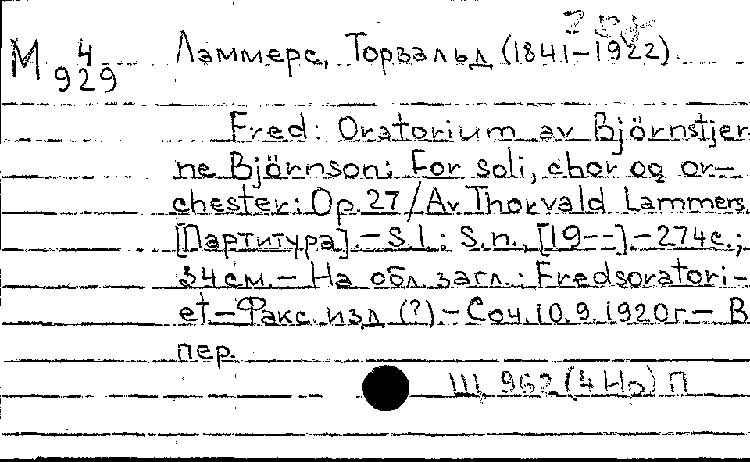 М 4/929 Ламмерс, Торвальд (1841-1922).
Fred: Oratorium av Björnstjer-
ne Björnson: For soli, chor og or-
chester: Op. 27 / Av Thorvald Lammers.
[Партитура]. - S.l.: S.n., [19--]. - 274 с.;
34 см. - На обл. загл.: Fredsoratori-
et - Факс. изд. (?). - Соч. 10.9.1920 г. - В
пер.
Щ 962 (4 Но) П